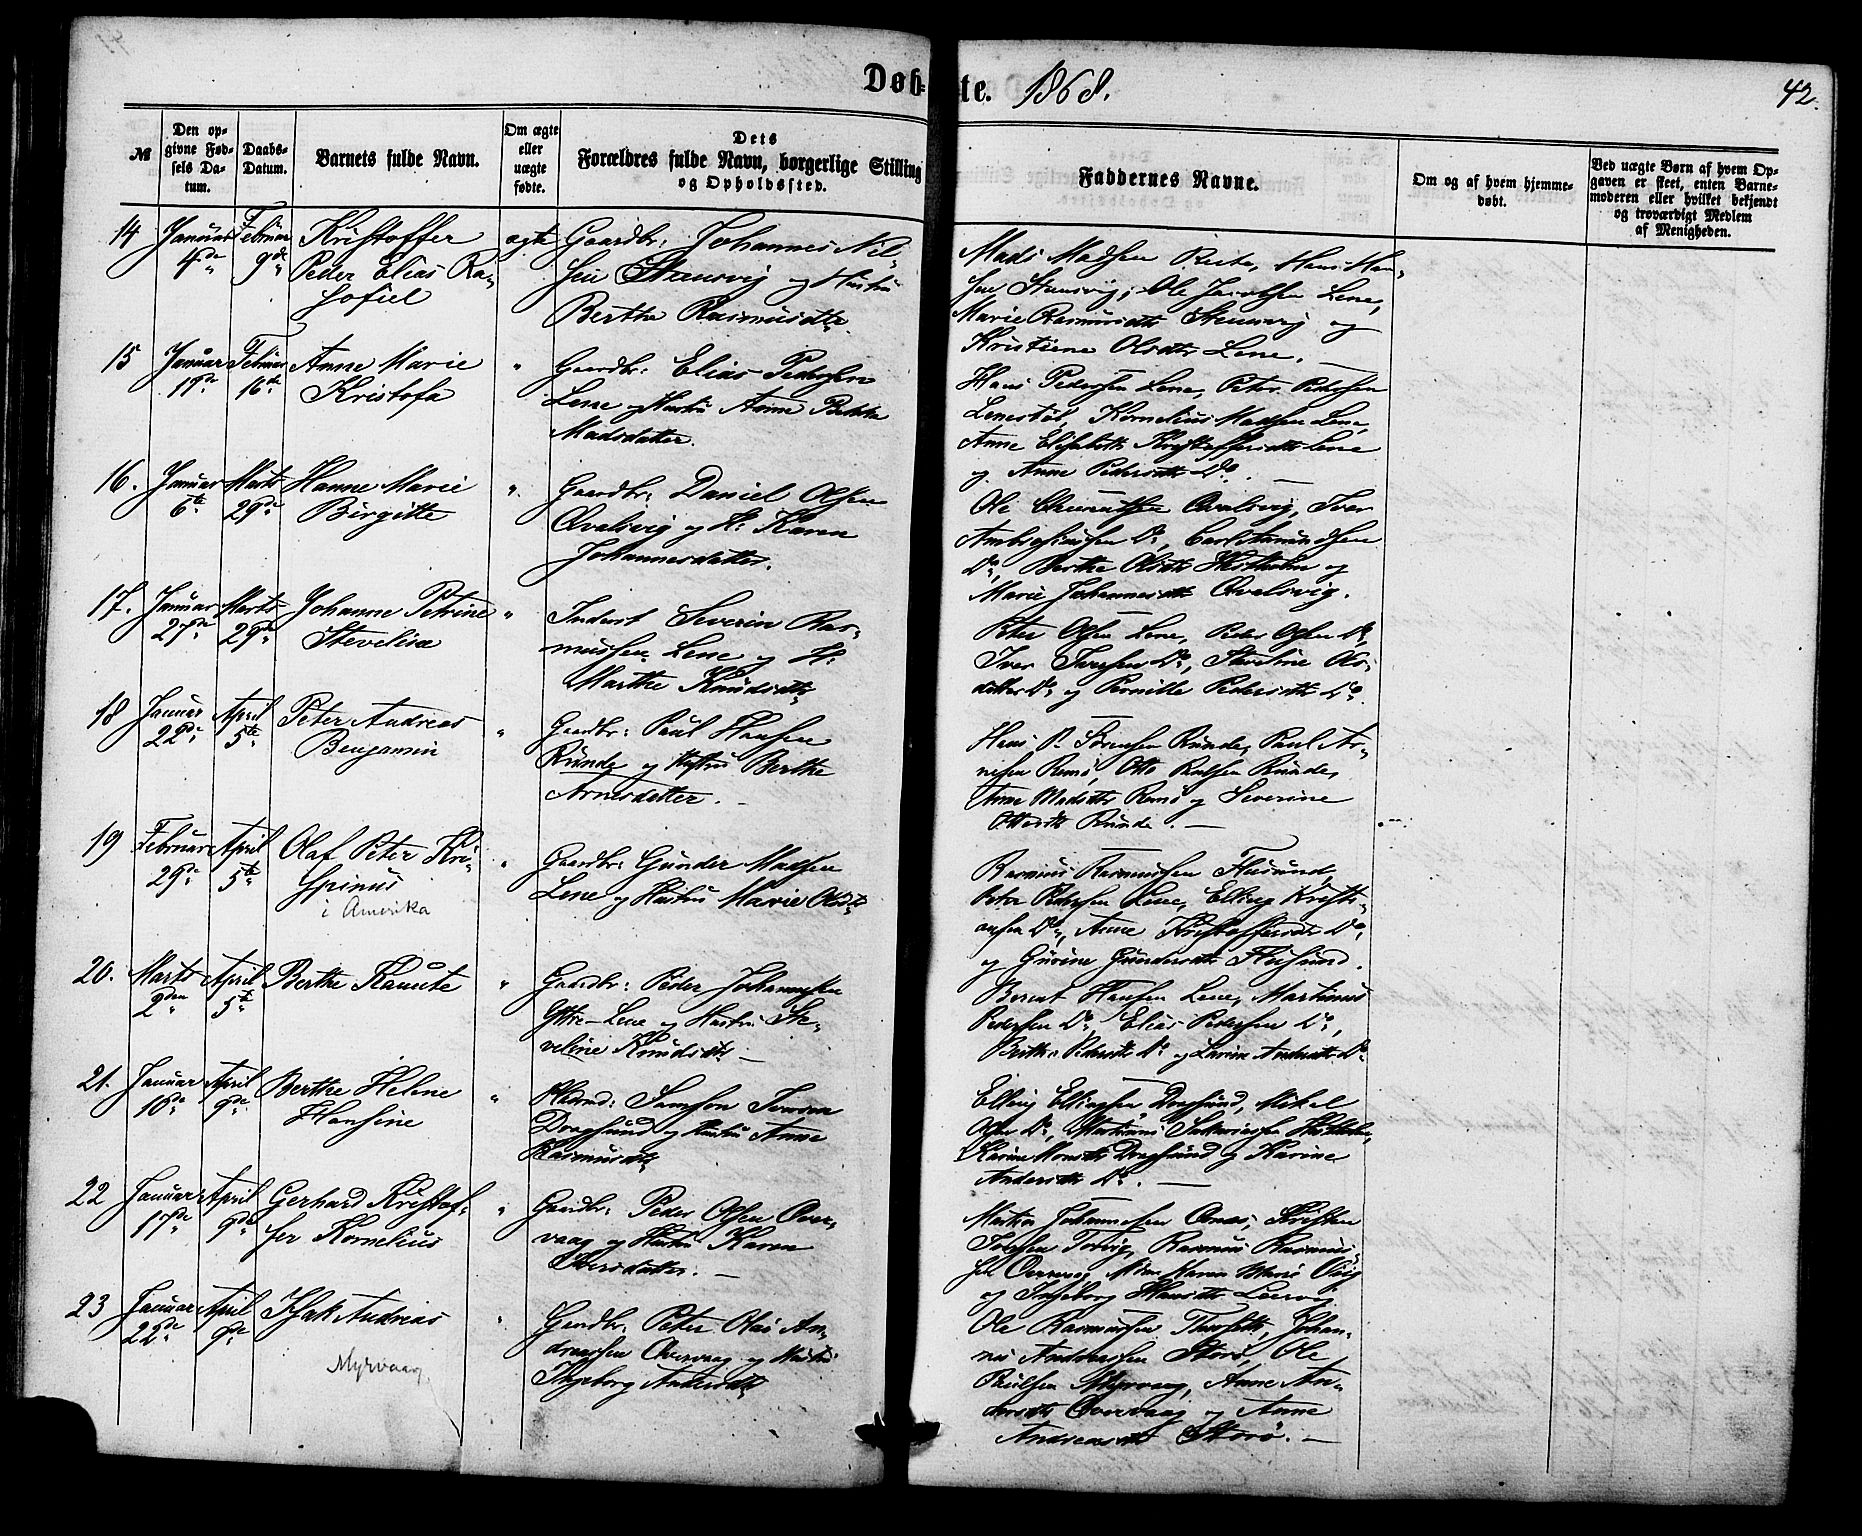 Døb-te. 1868.
42.
№
Den op-
givne Fød-
sels Da-
tum.
Daabs-
Datum.
Barnets fulde Navn.
Om ægte
eller
uægte
fødte.
Dets
Forældres fulde Navn, borgerlige Stilling
og Opholdssted.
Faddernes Navne.
Om og af hvem hjemme-
døbt.
Ved uægte Børn af hvem Op-
gaven er skeet, enten Barne-
moderen eller hvilket bekjendt
og troværdigt Medlem
af Menigheden.
14 Januar 4de Februar 9de
Kristoffer
Peder Elias Ra-
fael
ægte
Gaardbr: Johannes Nil-
sen Stensvig og Hustru
Berthe Rasmusdtr
Mads Madsen, Hans Han-
sen Stensvig, Ole Jacobsen Lene,
Marie Rasmusdtr Stensvig og
Kristiene Olsdtr Lene.
15 Januar 19de Februar 16de
Anne Marie
Kristofa
"
Gaardbr: Elias Pedersen
Lene og Hustru Anne
Madsdatter.
Hans Pedersen Lene, Peter Pedersen
Lenestøl, Kornelius Madsen Lene,
Anne Elisabeth Kristoffersdtr Lene
og Anne Pedersdtr Do.
16. Januar 6te Marts 29de
Hanne Marie
Birgitte
"
Gaardbr: Daniel Olsen
Qvalsvig og H: Karen
Johannesdatter.
Ole Qvalsvig, Iver
Ambrosiussen Do, Carl Amundsen
Do, Berthe Olsdtr og
Marie Johannesdtr Qvalsvig.
17. Januar 27de Marts 29de
Johanne Petrine
Stevelisa
"
Inderst Severin Ras-
mussen Lene og H:
Marthe Knudsdtr
Peter Olsen Lene, Peder Olsen Do,
Iver Iversen Do, Stevline Ols-
datter Do og Pernille Pedersdtr Do.
18 Januar 22de April 5te
Peter Andreas
Benjamin
"
Gaardbr: Paul Hansen
Runde og Hustru Berthe
Arnesdatter.
Hans P. Sørensen Runde, Paul Ar-
nesen Remø, Otto Paulsen Runde,
Anne Madsdtr Remø og Severine
Ottosdtr Runde.
19 Februar 29de April 5te
Olaf Peter Kri-
spinus
i Amerika
"
Gaardbr: Gunder Madsen
Lene og Hustru Marie Olsdtr
Rasmus Rasmussen Flusund,
Peter Pedersen Lene, Elling Kristi-
ansen Do, Anne Kristoffersdtr Do,
og Gurine Gundersdtr Flusund.
20. Marts 2den April 5te
Berthe Knute
"
Gaardbr: Peder Johannesen
Ytre-Lene og Hustru Ste-
veline Knudsdtr
Berent Hansen Lene, Martinus
Pedersen Do, Elias Pedersen Do,
Berthe Pedersdtr Do og Lavine Andersdtr Do.
21. Januar 10de April 9de
Berthe Helene
Hansine
"
Husmd: Samson Iversen
Dragsund og Hustru Anne
Rasmusdtr
Elling Ellingsen Dragsund, Mikel
Olsen Do, Martinus
Karine Monsdtr Dragsund og Karine
Andersdtr Do.
22 Januar 17de April 9de
Gerhard Kristof-
fer Kornelius
"
Gaardbr: Peder Olsen Over-
vaag og Hustru Karen
Iversdatter.
Martin Johannesen Aanæs, Kristen
Josefsen Torvig, Rasmus Rasmus-
sen Karen Marie
og Ingeborg Hansdtr Leervig
23 Januar 22de April 9de
Isak Andreas
Myrvaag
"
Gaardbr: Peter Olai An-
dreassen Overvaag og Hustru
Ingeborg Andersdtr
Ole Rasmussen Tarseth, Johan-
nes Andreassen Storø, Ole
Paulsen Myrvaag, Anne An-
dersdtr Overvaag og Anne
Andreasdtr Storø.